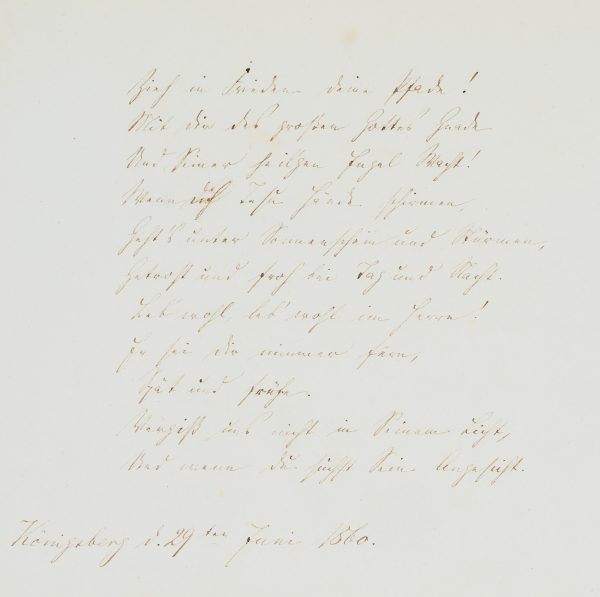 Zieh in Frieden deine Pfade!
Mit dir des großen Gottes Gnade
Und Seiner heilgen Engel Wacht!
Wenn dich Jesu Hände schirmen,
Geht's unter Sonnenschein und Stürmen,
Getrost und froh bei Tag und Nacht.
Leb' wohl, leb' wohl im Herrn!
Er sei dir nimmer fern,
Spät und frühe.
Vergiß uns nicht in Seinem Licht,
Und wenn du suchst Sein Angesicht.
Königsberg d. 29ten Juni 1860.